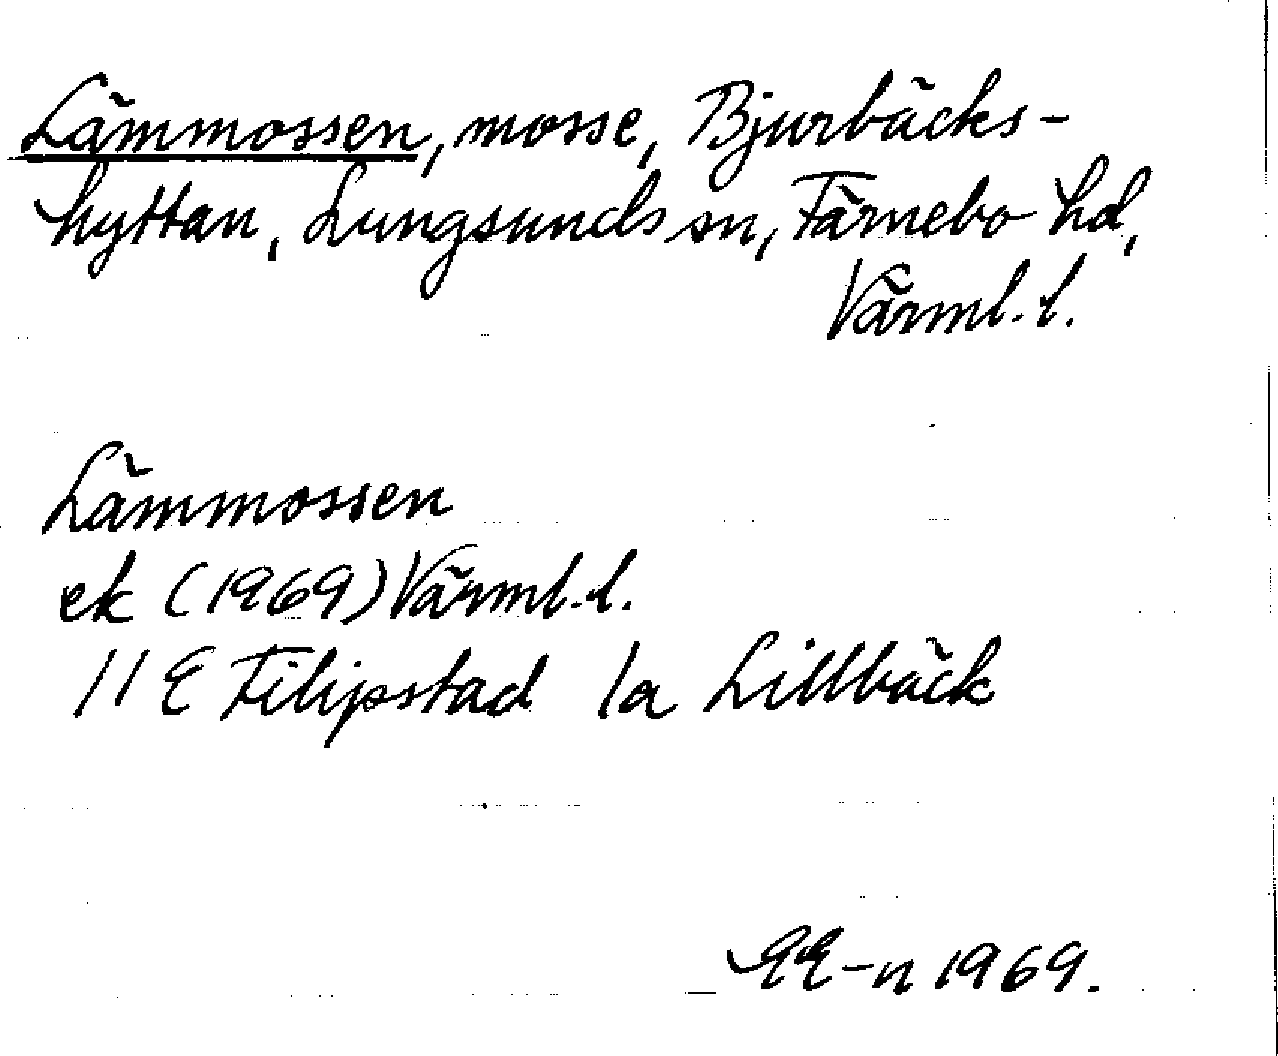 Lämmossen, mosse, Bjurbäcks-
hyttan, Lungsunds sn, Färnebo hd,
Värml. l.
Lämmossen
ek (1969) Värml. l.
11 E Filipstad 1a Lillbäck
EE-n 1969.